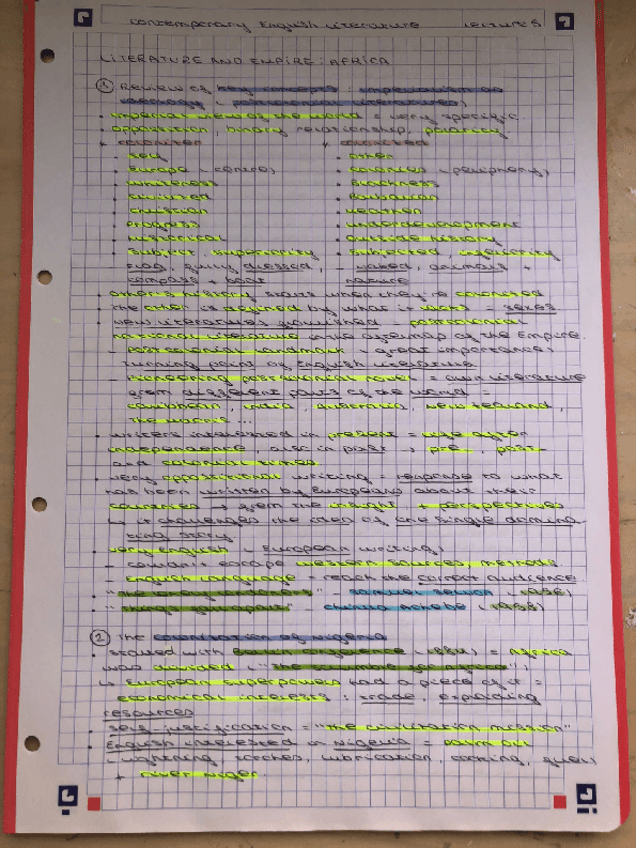 contemporary English literature lecture 5
LITERATURE AND EMPIRE: AFRICA
① Review of key concepts: imperialism as
ideology (postcolonial literatures)
• imperial view of the world = very specific.
• opposition, binary relationship, polarity
+ coloniser + colonised
• self • other
• Europe (centre) • colonies (periphery)
• whiteness • blackness
• civilized • barbarian
• christian • heathen
• progress • underdevelopment
• historical • outside history
• subject, superiority • subjected, inferiority
- flag, fully dressed, - naked, animals +
compass + boat nature
• other's history starts when they're colonized
• the other is defined by what it lacks
• new literatures flourished = postcolonial
national literature in the aftermath of the Empire.
- postcolonial landmark = great importance:
turning point of English literature
- pioneering postcolonial novel = own literature
from different parts of the world =
caribbean, india, australia, new zealand,
...
• writers interested in present = life after
independence, also in past → pre, post
and colonial times.
• very oppositional writing = response to what
has been written by Europeans about their
countries → from the insight + perspectives
↳ it challenges the idea of the single domina-
ting story
• very English (European writing)
- couldn't escape western sources, methods.
- English language = reach the correct audience
• "the lonely londoners" - samuel selvon (1956)
• "things fall apart" - chinua achebe (1958)
② The colonization of nigeria
• started with Berlin conference (1884) = Africa
was divided ("the scramble for africa")
↳ European superpowers had a piece of it =
economical interests: trade, exploiting
resources
• self justification = "the civilization mission"
• English interested in nigeria = palm oil
(lightening torches, lubrication, cooking, fuel)
+ river niger.